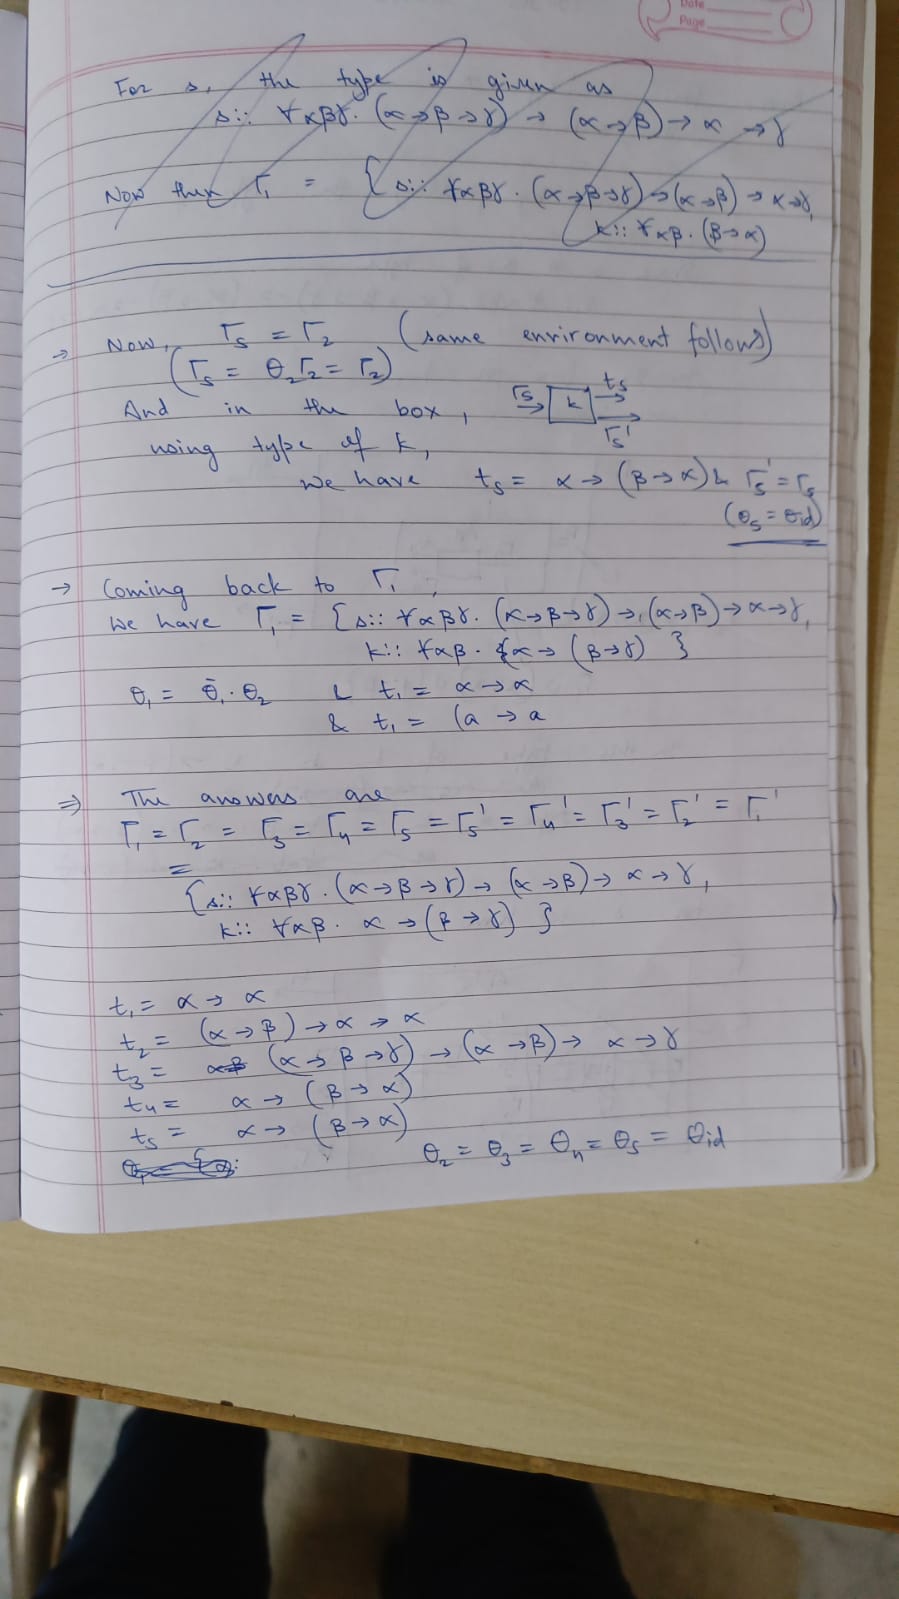 Date
Page
For s, the type is given as
s:: ∀αβγ. (α→β→γ) → (α→β) → α → γ
Now then Γ₁ = { s:: ∀αβγ. (α→β→γ)→(α→β)→α→γ,
k:: ∀αβ. (β→α)
→ Now, Γ₅ = Γ₂ (same environment follows)
(Γ₅ = θ₂Γ₂ = Γ₂)
And in the box, Γ₅ → k → t₅
Γ₅'
using type of k,
we have t₅ = α → (β→α) & Γ₅' = Γ₅
(θ₅ = θid)
→ Coming back to Γ₁,
we have Γ₁ = {s:: ∀αβγ. (α→β→γ)→(α→β)→α→γ,
k:: ∀αβ. α→ (β→γ) }
θ₁ = θ̄₁ · θ₂ & t₁ = α → α
& t₁ = (a → a
⇒ The answers are
Γ₁ = Γ₂ = Γ₃ = Γ₄ = Γ₅ = Γ₅' = Γ₄' = Γ₃' = Γ₂' = Γ₁'
=
{s:: ∀αβγ. (α→β→γ) → (α→β) → α→γ,
k:: ∀αβ. α → (β→γ) }
t₁ = α → α
t₂ = (α→β) → α → α
t₃ = (α→β→γ) → (α→β) → α→γ
t₄ = α → (β→α)
t₅ = α → (β→α)
θ₂ = θ₃ = θ₄ = θ₅ = θid